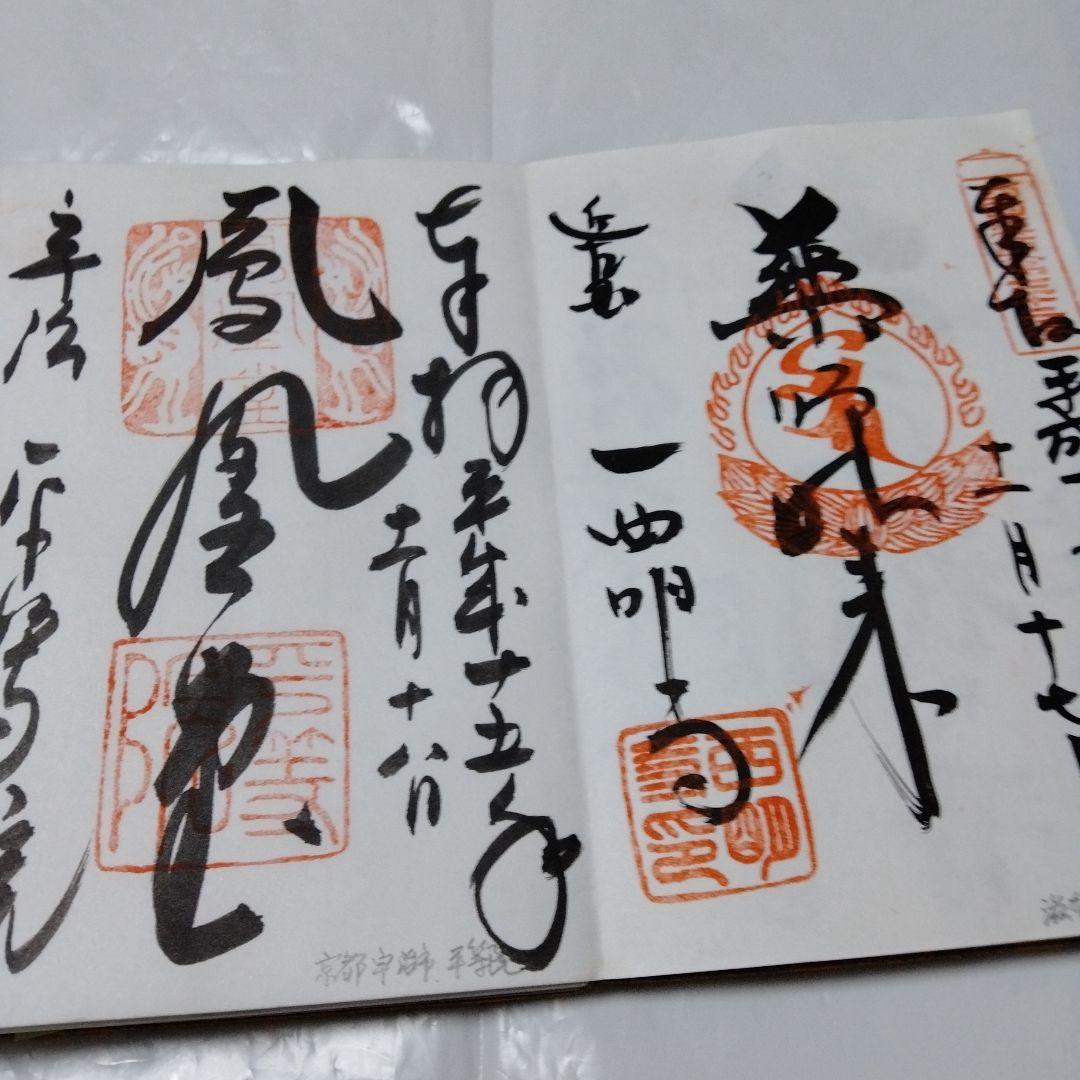 奉拝
平成十
十一月十七日
薬師如来
西明寺
奉拝
平成十五年
十一月十八日
鳳凰堂
宇治
平等院
京都宇治市 平等院